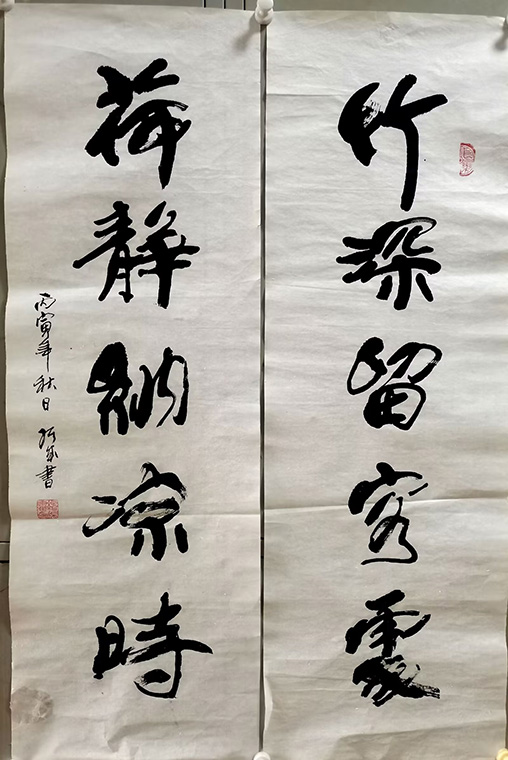 竹深留客處
荷静納凉時
丙寅年秋日
書